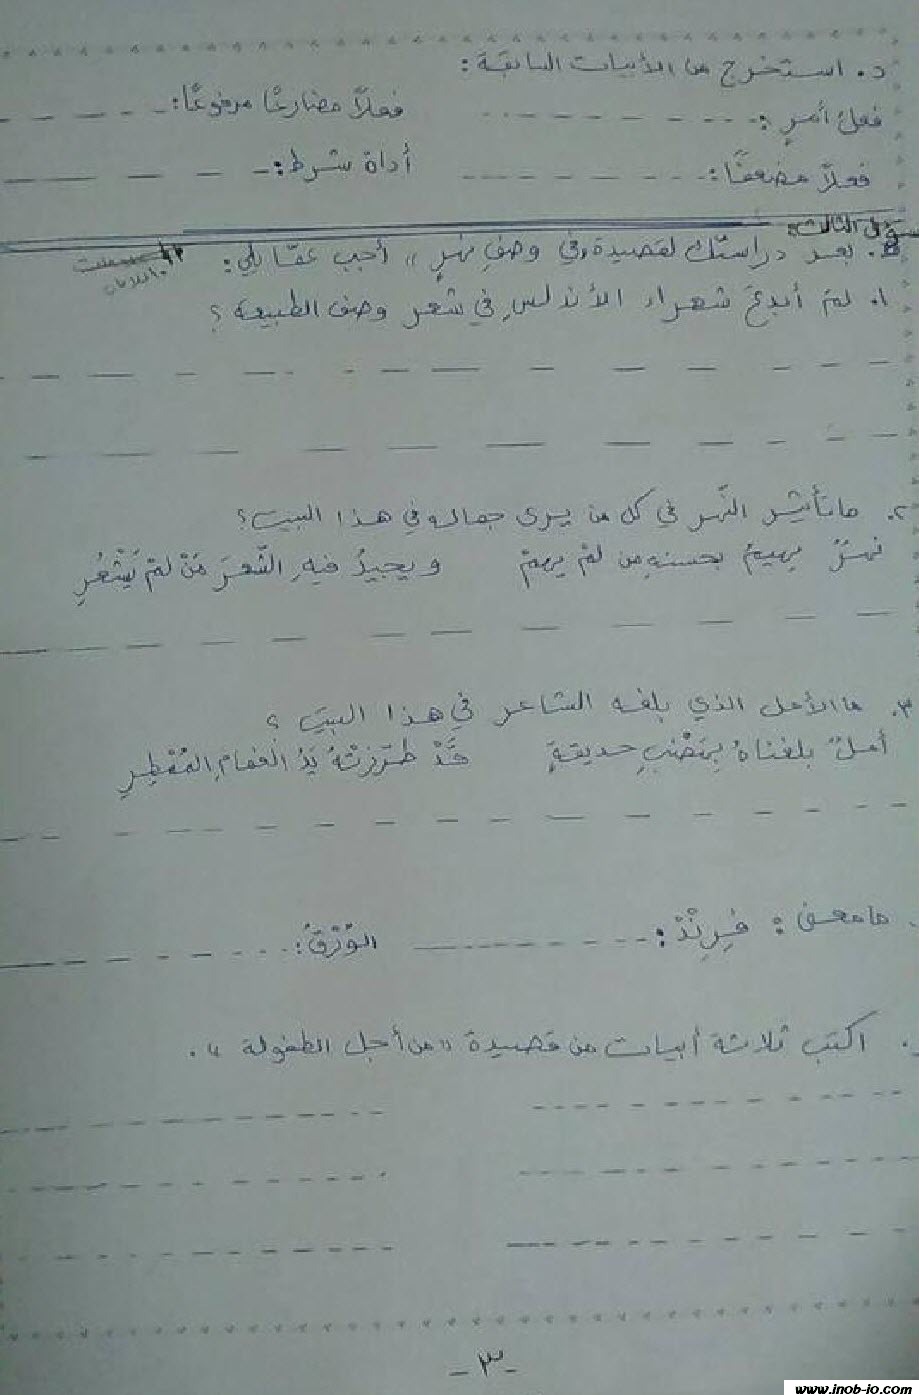 د. استخرج من الأبيات السابقة:
فعل أمرٍ: - - - - - - - - - فعلاً مضارعًا مرفوعًا: - - - - - -
فعلاً مضعفًا: - - - - - - - - - أداة شرط: - - - - - -
سؤال الثالث:
بعد دراستك لقصيدة "في وصف نهرٍ"، أجب عمّا يلي:
١. لمَ أبدعَ شعراء الأندلسِ في شعر وصف الطبيعة؟
٢. ما تأثير النّهر في كل من يرى جماله في هذا البيت؟
نهرٌ يهيمُ بحسنهِ من لمْ يهمْ ويجيدُ فيهِ الشّعرَ مَنْ لمْ يَشْعُرِ
٣. ما الأمل الذي بلغه الشاعر في هذا البيت؟
أملٌ بلغناهُ بِهَضْبِ حديقةٍ قَدْ طرّزتْهُ يَدُ الغمامِ المُمْطِرِ
ما معنى: فِرِنْدْ: - - - - - - - - - الوُرْقُ: - - - - - - - - -
اكتب ثلاثة أبيات من قصيدة "من أجل الطفولة".
- ٣ -
www.inob-io.com